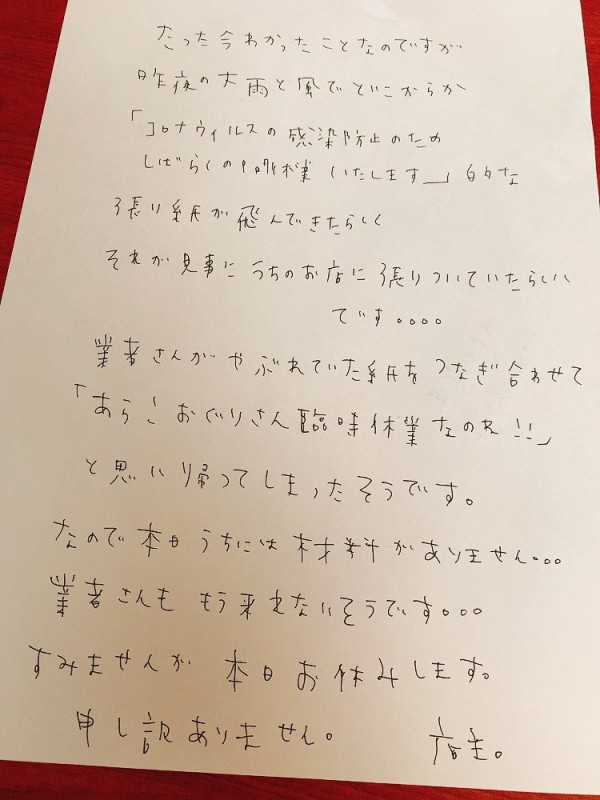 たった今わかったことなのですが
昨夜の大雨と風でどこからか
「コロナウィルスの感染防止のため
しばらくの間休業いたします」的な
張り紙が飛んできたらしく
それが見事にうちのお店に張りついていたらしい
です。。。。
業者さんがやぶれていた紙をつなぎ合わせて
「あら！おぐりさん臨時休業なのね!!」
と思い帰ってしまったそうです。
なので本日うちには材料がありません。。。
業者さんももう来れないそうです。。。
すみませんが本日お休みします。
申し訳ありません。 店主。